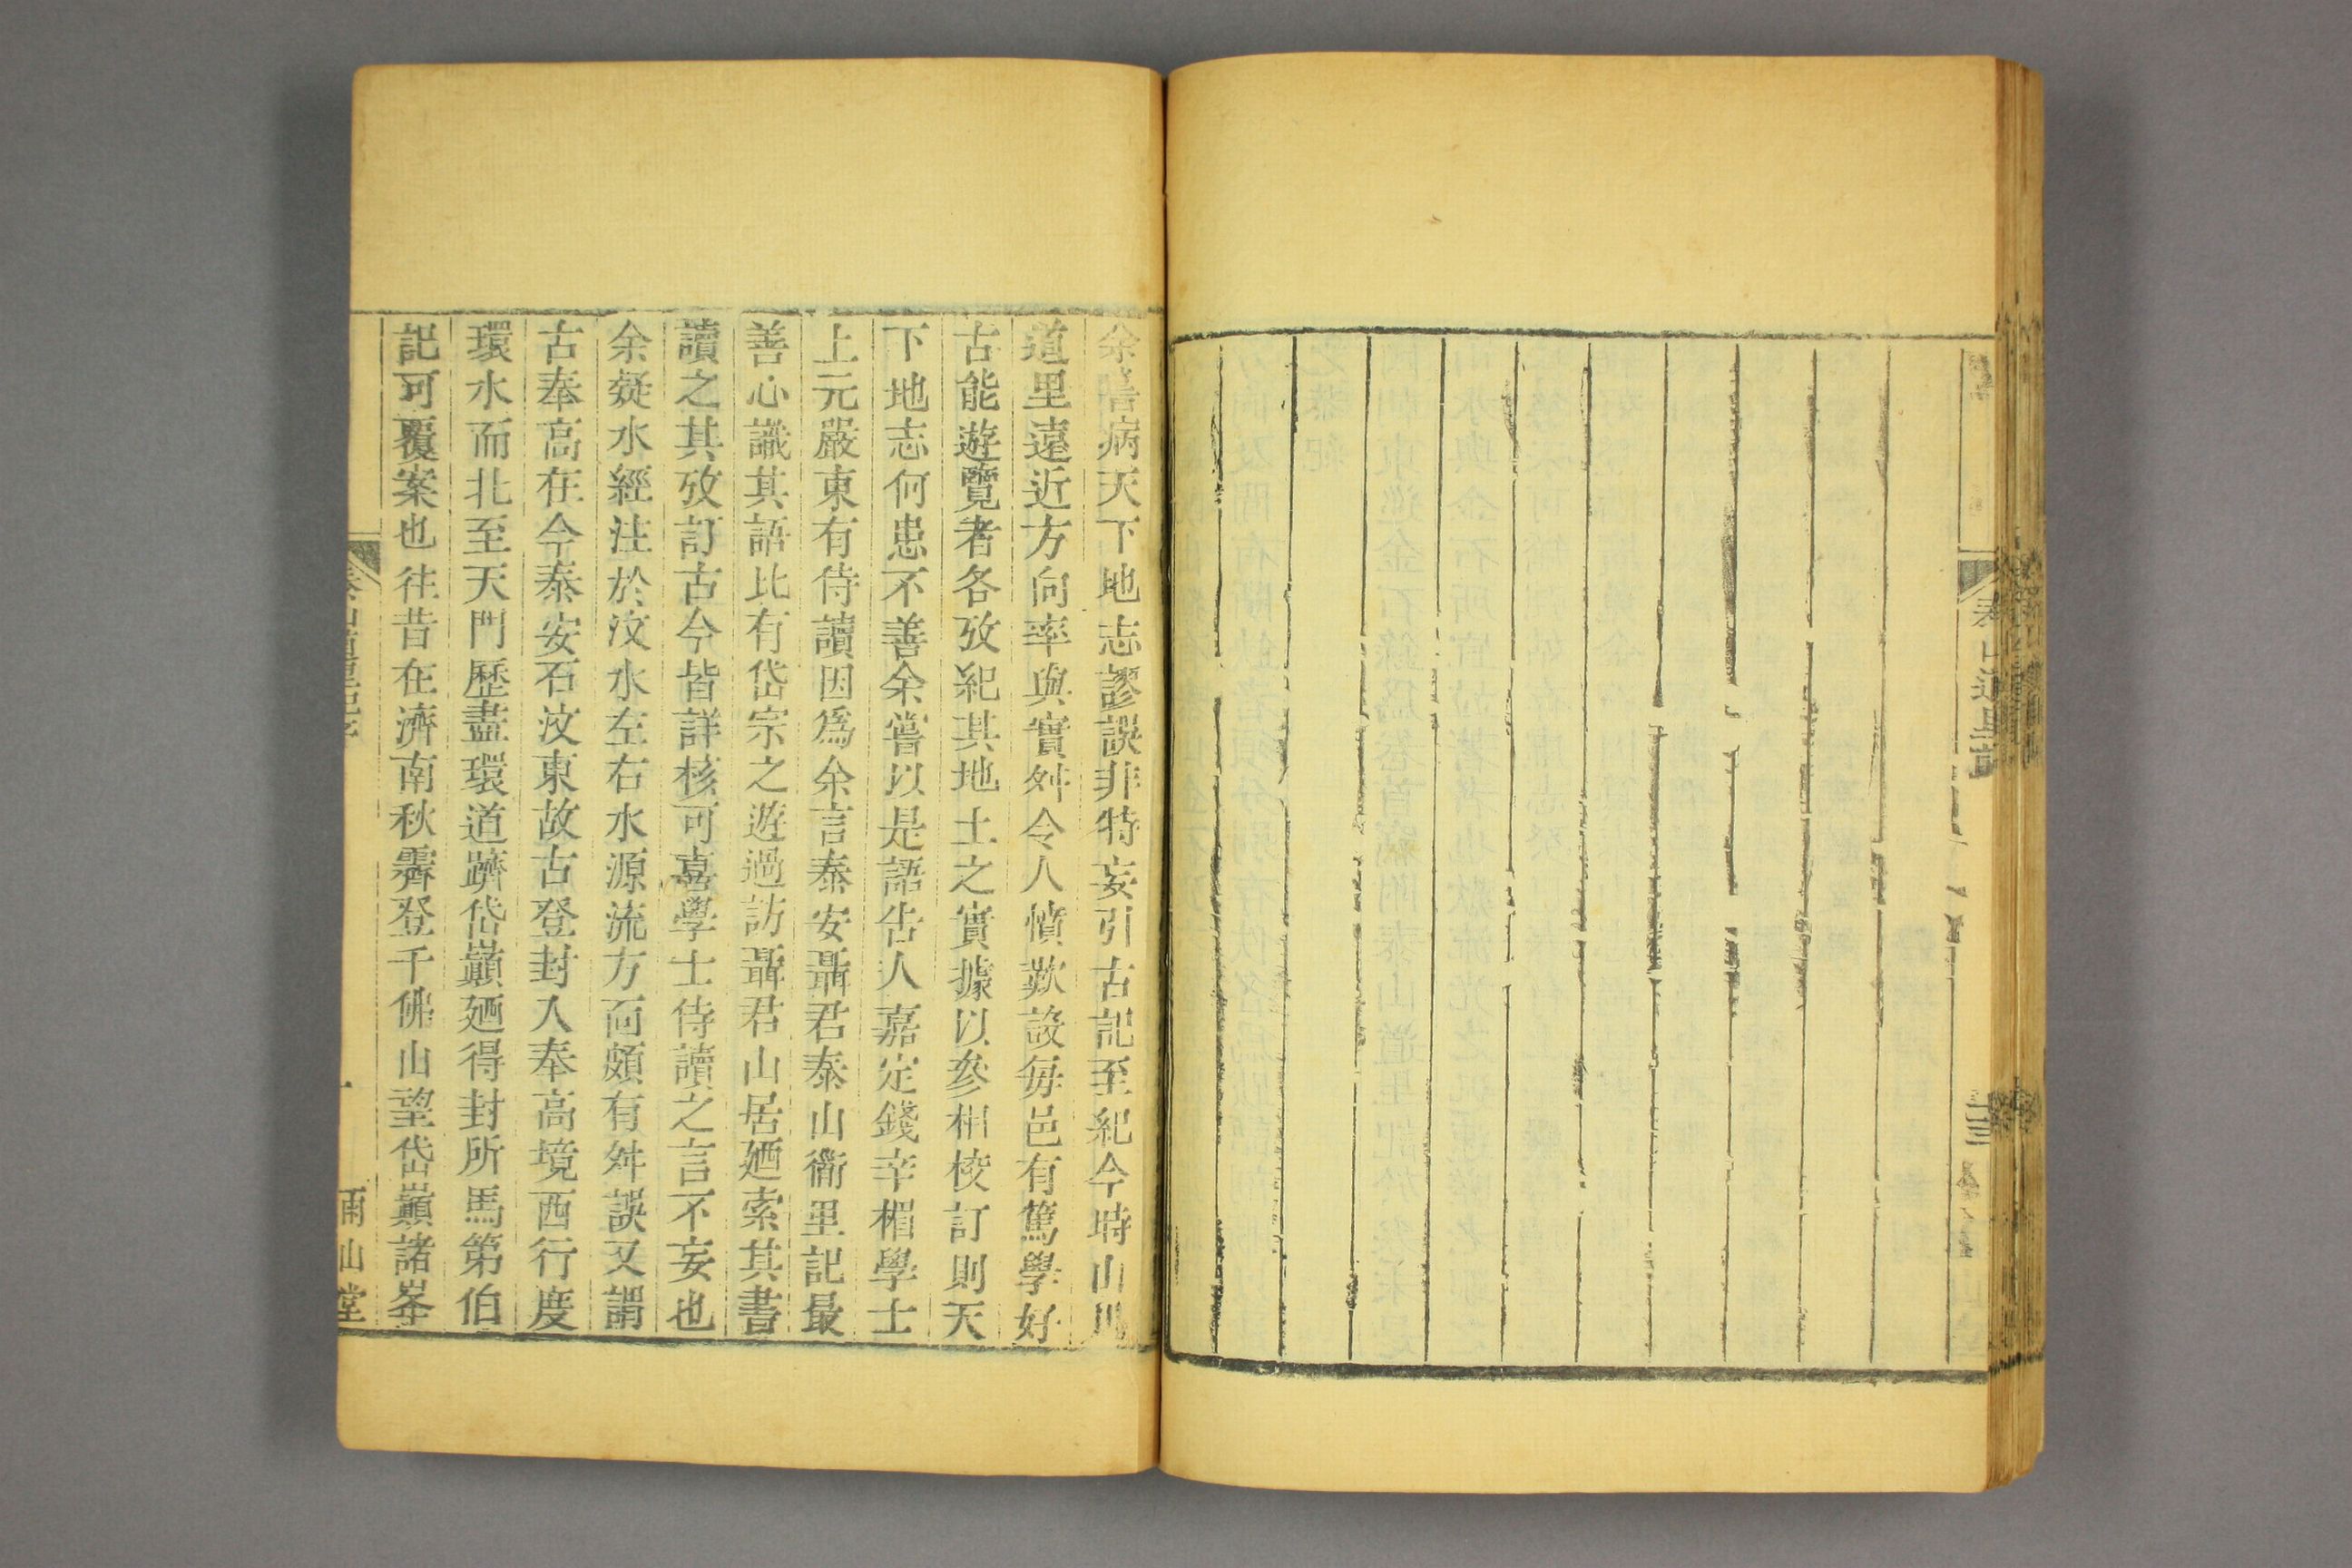 泰山道里記
余嘗病天下地志謬誤非特妄引古記至紀今時山川
道里遠近方向率與實舛令人憤歎設每邑有篤學好
古能遊覽者各攷紀其地土之實據以參相校訂則天
下地志何患不善余嘗以是語告人嘉定錢辛楣學士
上元嚴東有侍讀因為余言泰安聶君泰山衜里記最
善心識其語比有岱宗之遊過訪聶君山居廼索其書
讀之其攷訂古今皆詳核可喜學士侍讀之言不妄也
余疑水經注於汶水左右水源流方向頗有舛誤又謂
古奉高在今泰安石汶東故古登封入奉高境西行度
環水而北至天門歷盡環道躋岱巔廼得封所馬第伯
記可覆案也往昔在濟南秋霽登千佛山望岱巔諸峯
泰山道里記序
一
雨山堂